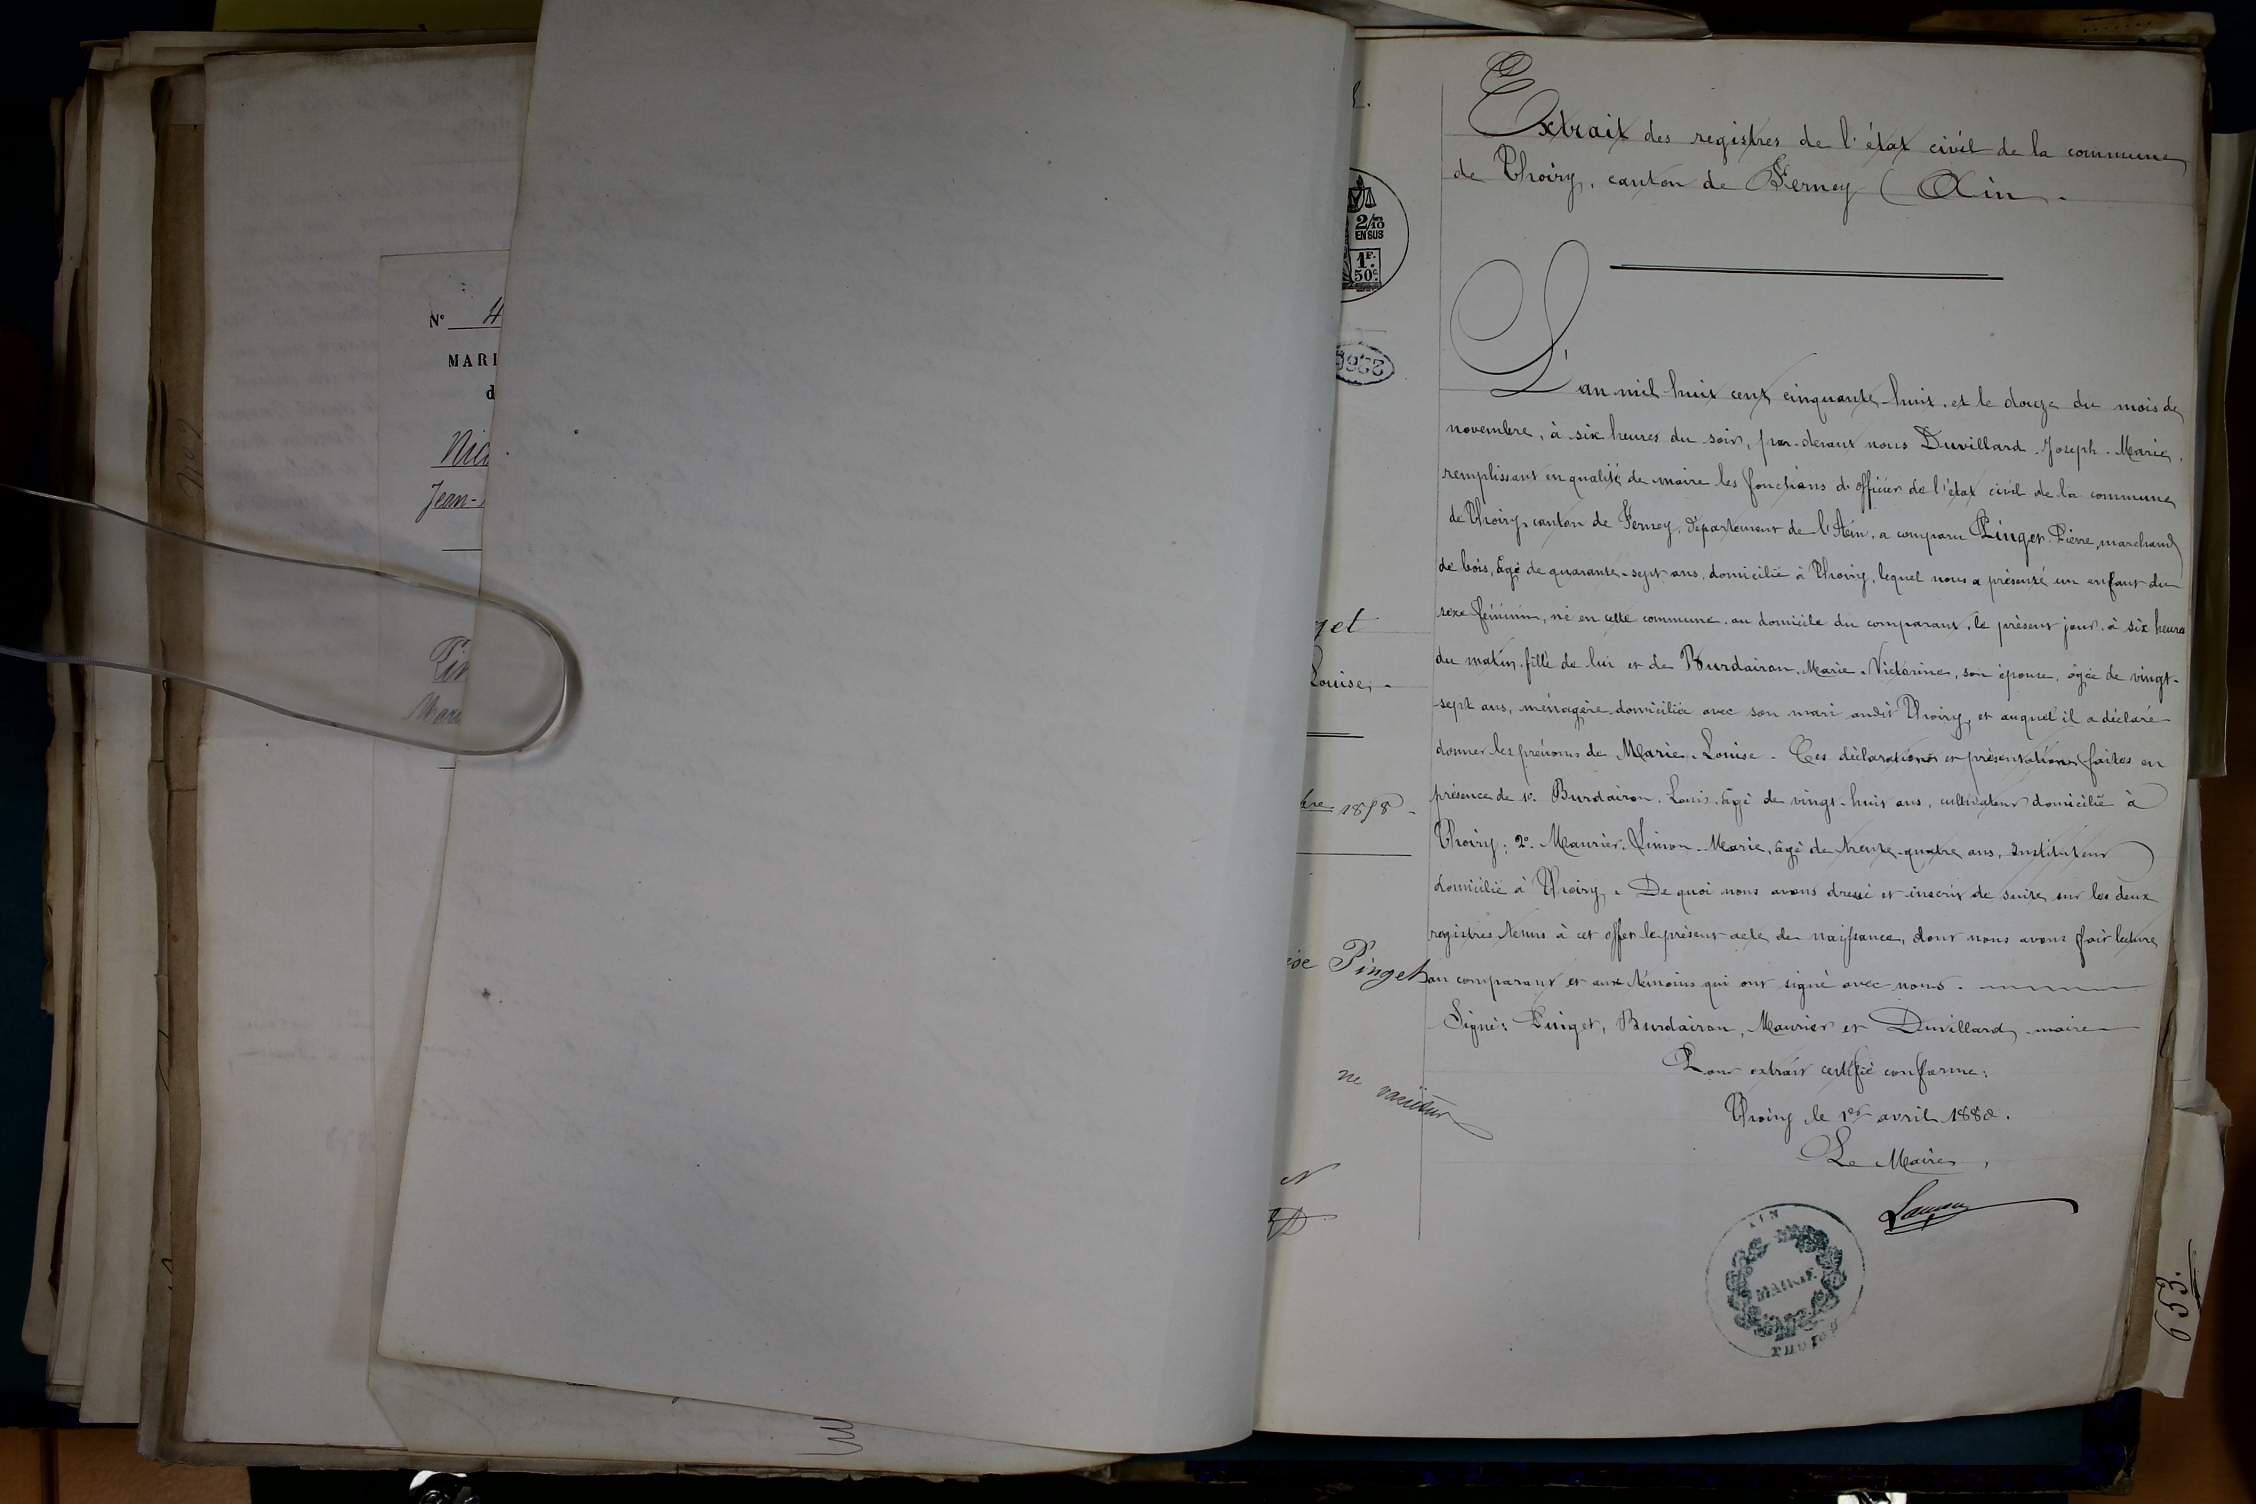 N° 4
MARI
d
Nic
Jean-
Pin
Mari
2/10
EN SUS
1F.
50c.
2286
get
Louise, -
bre 1858 -
ise Pinget
ne varietur
Extrait des registres de l'état civil de la commune
de Thoiry, canton de Ferney (Ain.
L'an mil-huit cent cinquante-huit, et le douze du mois de
novembre, à six heures du soir, par-devant nous Duvillard Joseph-Marie,
remplissant en qualité de maire les fonctions d'officier de l'état civil de la commune
de Thoiry, canton de Ferney, département de l'Ain, a comparu Pinget Pierre, marchand
de bois, âgé de quarante-sept ans, domicilié à Thoiry, lequel nous a présenté un enfant du
sexe féminin, né en cette commune au domicile du comparant, le présent jour, à six heures
du matin, fille de lui et de Burdairon, Marie-Victorine, son épouse, âgée de vingt-
-sept ans, ménagère domiciliée avec son mari audit Thoiry, et auquel il a déclaré
donner les prénoms de Marie-Louise. Ces déclarations et présentations faites en
présence de 1°. Burdairon, Louis, âgé de vingt-huit ans, cultivateur domicilié à
Thoiry; 2°. Maurier, Simon-Marie, âgé de trente-quatre ans, Instituteur
domicilié à Thoiry. De quoi nous avons dressé et inscrit de suite sur les deux
registres tenus à cet effet le présent acte de naissance, dont nous avons fait lecture
au comparant et aux témoins qui ont signé avec nous.
Signé: Pinget, Burdairon, Maurier et Duvillard, maire
Pour extrait certifié conforme:
Thoiry le 1er avril 1880.
Le Maire,
AIN
MAIRIE
653.